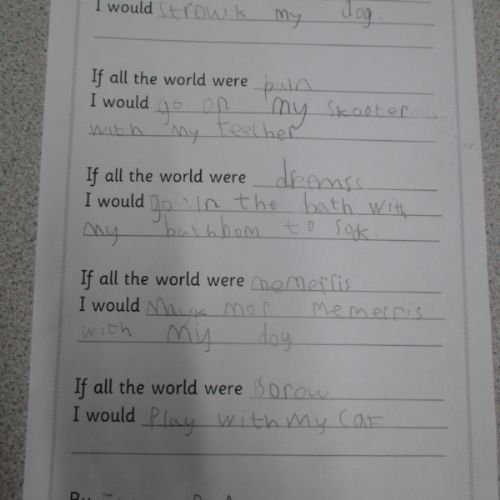 I would strowk my dog.
If all the world were pain
I would go on my skooter
with my feether
If all the world were dreemss
I would go in the bath with
my bathbom to sok.
If all the world were memerris
I would Mayk mor memerris
with my dog
If all the world were Sorow
I would Play with my Cat
By